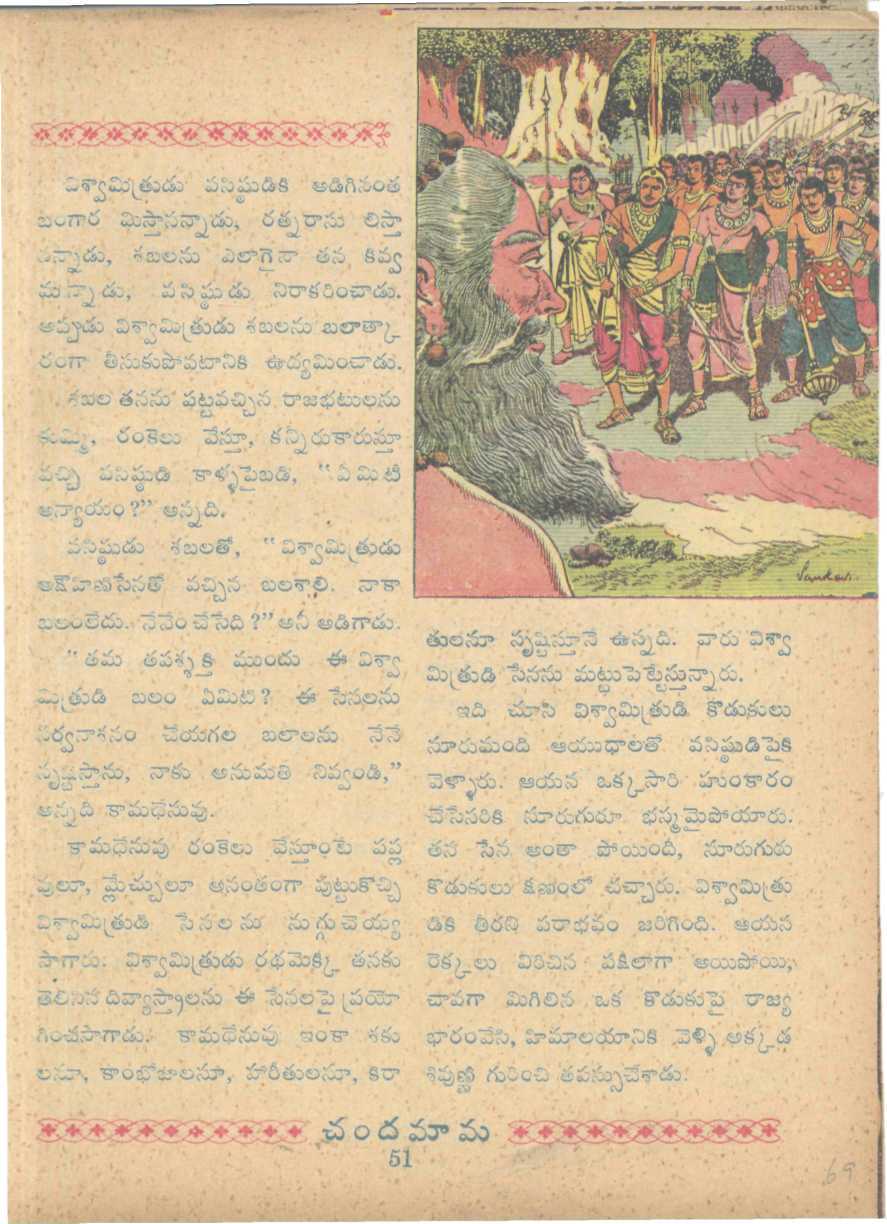 విశ్వామిత్రుడు వసిష్ఠుడికి అడిగినంత
బంగార మిస్తానన్నాడు, రత్నరాసు లిస్తా
నన్నాడు, శబలను ఎలాగైనా తన కివ్వ
మన్నాడు, వసిష్ఠుడు నిరాకరించాడు.
అప్పుడు విశ్వామిత్రుడు శబలను బలాత్కా
రంగా తీసుకుపోవటానికి ఉద్యమించాడు.
శబల తనను పట్టవచ్చిన రాజభటులను
కుమ్మి, రంకెలు వేస్తూ, కన్నీరుకారుస్తూ
వచ్చి వసిష్ఠుడి కాళ్ళపైబడి, "ఏమిటి
అన్యాయం?" అన్నది.
వసిష్ఠుడు శబలతో, "విశ్వామిత్రుడు
అక్షౌహిణిసేనతో వచ్చిన బలశాలి. నాకా
బలంలేదు. నేనేం చేసేది?" అని అడిగాడు.
"తమ తపశ్శక్తి ముందు ఈ విశ్వా
మిత్రుడి బలం ఏమిటి? ఈ సేనలను
సర్వనాశనం చేయగల బలాలను నేనే
సృష్టిస్తాను, నాకు అనుమతి నివ్వండి,"
అన్నది కామధేనువు.
కామధేనువు రంకెలు వేస్తూంటే పప్ల
వులూ, మ్లేచ్ఛులూ అనంతంగా పుట్టుకొచ్చి
విశ్వామిత్రుడి సేనలను నుగ్గుచెయ్య
సాగారు. విశ్వామిత్రుడు రథమెక్కి తనకు
తెలిసిన దివ్యాస్త్రాలను ఈ సేనలపై ప్రయో
గించసాగాడు. కామధేనువు ఇంకా శకు
లనూ, కాంభోజులనూ, హారీతులనూ, కిరా
Sankar.
తులనూ సృష్టిస్తూనే ఉన్నది. వారు విశ్వా
మిత్రుడి సేనను మట్టుపెట్టేస్తున్నారు.
ఇది చూసి విశ్వామిత్రుడి కొడుకులు
నూరుమంది ఆయుధాలతో వసిష్ఠుడిపైకి
వెళ్ళారు. ఆయన ఒక్కసారి హుంకారం
చేసేసరికి నూరుగురూ భస్మమైపోయారు.
తన సేన అంతా పోయింది, నూరుగురు
కొడుకులు క్షణంలో చచ్చారు. విశ్వామిత్రు
డికి తీరని పరాభవం జరిగింది. ఆయన
రెక్కలు విరిచిన పక్షిలాగా అయిపోయి,
చావగా మిగిలిన ఒక కొడుకుపై రాజ్య
భారంవేసి, హిమాలయానికి వెళ్ళి అక్కడ
శివుణ్ణి గురించి తపస్సుచేశాడు.
చందమామ
51
69